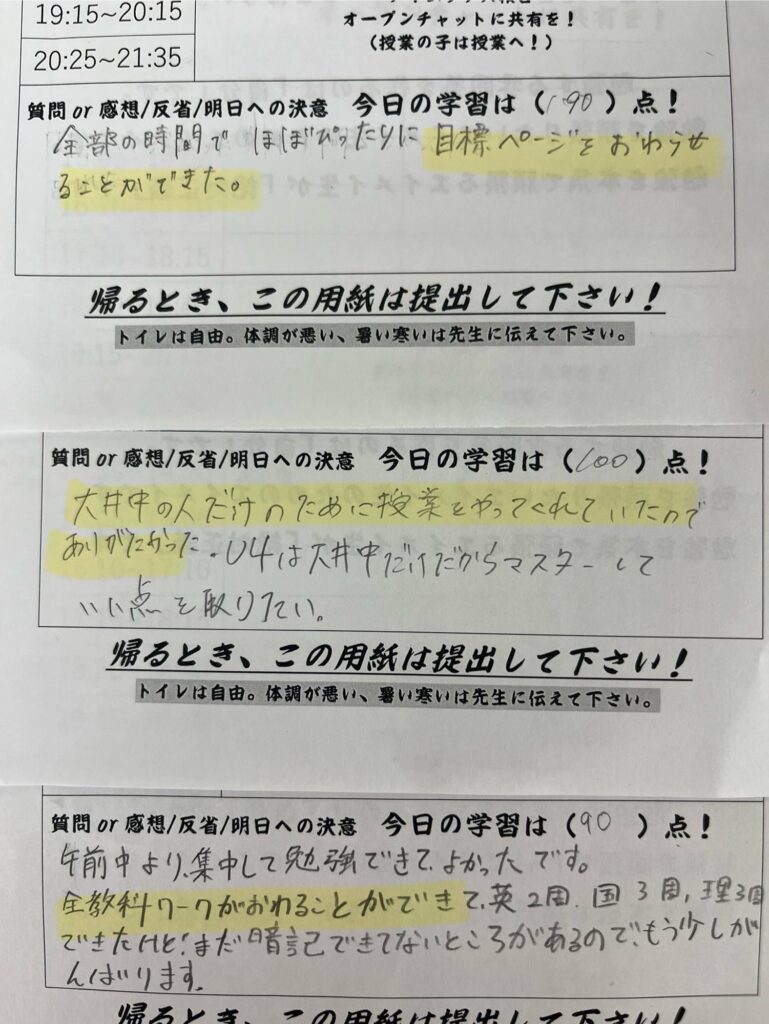 19:15~20:15
オープンチャットに共有を！
20:25~21:35
（授業の子は授業へ！）
質問 or 感想/反省/明日への決意 今日の学習は（90）点！
全部の時間で ほぼぴったりに 目標ページをおわらせ
ることができた。
帰るとき、この用紙は提出して下さい！
トイレは自由。体調が悪い、暑い寒いは先生に伝えて下さい。
質問 or 感想/反省/明日への決意 今日の学習は（100）点！
大井中の人だけのために授業をやってくれていたので
ありがたかった。U4は大井中だけだからマスターして
いい点を取りたい。
帰るとき、この用紙は提出して下さい！
トイレは自由。体調が悪い、暑い寒いは先生に伝えて下さい。
質問 or 感想/反省/明日への決意 今日の学習は（90）点！
午前中より、集中して勉強できて、よかったです。
全教科ワークがおわることができて、英2周、国3周，理3周
できたけど！まだ暗記できてないところがあるので、もう少しが
んばります。
帰るとき、この用紙は提出して下さい！